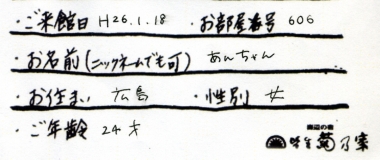 ・ご来館日 H26.1.18 ・お部屋番号 606
・お名前(ニックネームでも可) あんちゃん
・お住まい 広島 ・性別 女
・ご年齢 24才
海辺の宿
味宝 菊乃家